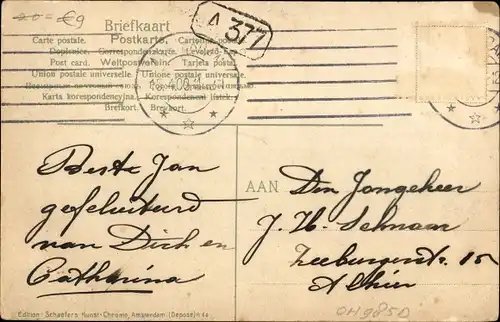 20 = €9
Briefkaart
Postkarte.
A 377
Carte postale. Cartolina postale
Dopisnice. Correspondenzkarte. Levelező-Lap.
Post card. Weltpostverein. Tarjeta postal.
Union postale universelle. Unione postale universale.
Karta korespondencyjna. Korespondenční lístek.
Brefkort. Brevkort.
Beste Jan
gefeliciteerd
van Dich en
Catharina
AAN
Den Jongeheer
J. H. Schnaar
Zeeburgerstr 15
Alhier
OH985D
Edition: Schaefers Kunst-Chromo, Amsterdam (Deposé)